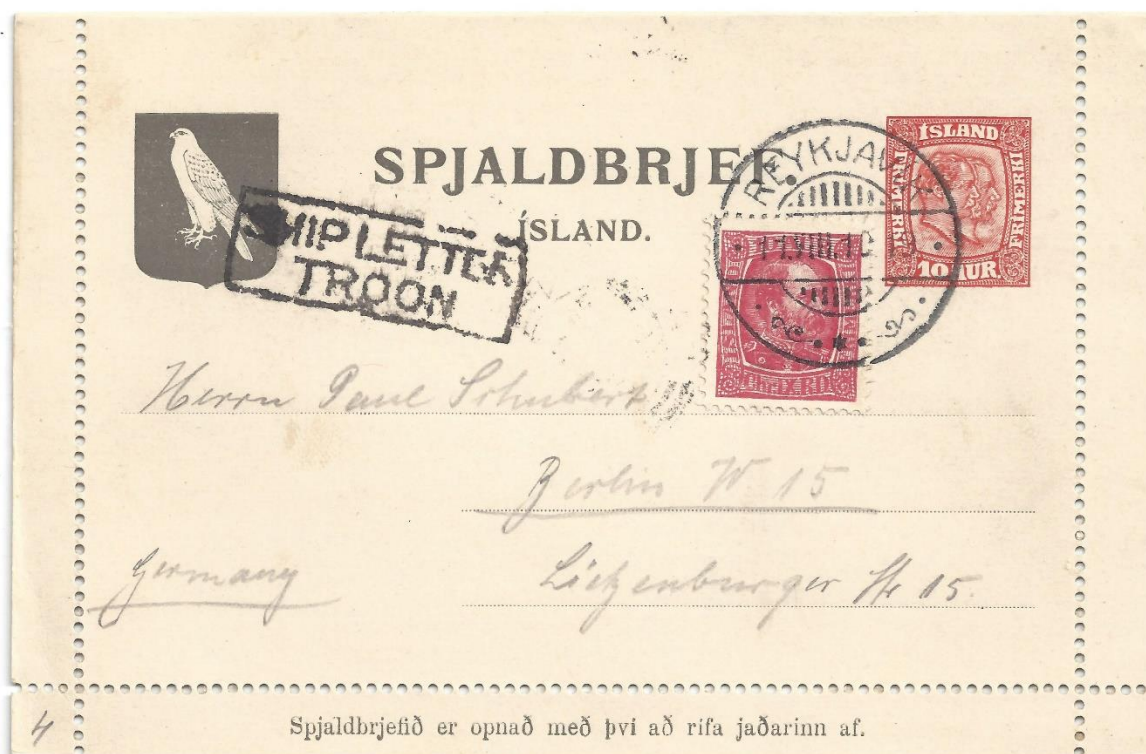 SPJALDBRJEF
ÍSLAND.
SHIP LETTER
TROON
REYKJAVIK
ÍSLAND
FRÍMERKI
FRÍMERKI
10 AUR.
Herrn Paul Schubert
Berlin W 15
Germany
Lietzenburger Str 15.
4
Spjaldbrjefið er opnað með því að rífa jaðarinn af.